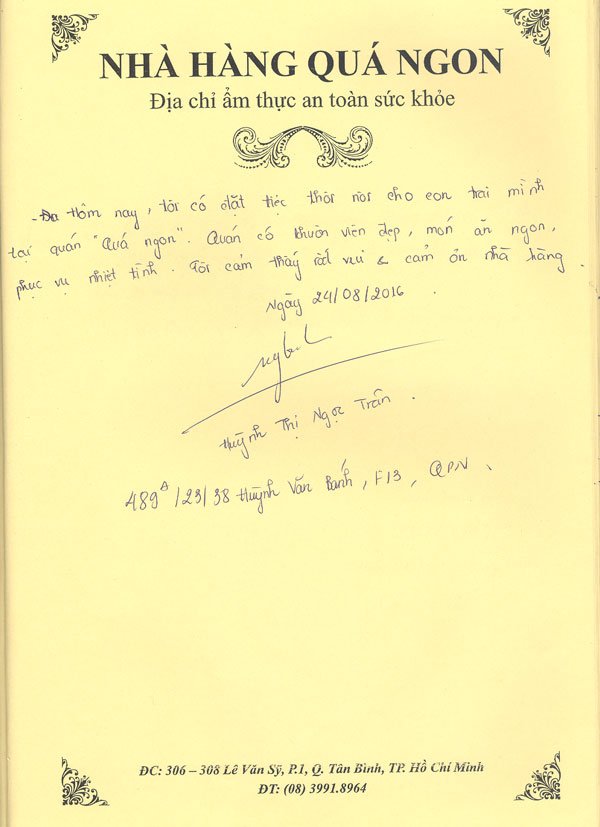 NHÀ HÀNG QUÁ NGON
Địa chỉ ẩm thực an toàn sức khỏe
Hôm nay, tôi có đặt tiệc thôi nôi cho con trai mình
tại quán "Quá ngon". Quán có khuôn viên đẹp, món ăn ngon,
phục vụ nhiệt tình. Tôi cảm thấy rất vui & cảm ơn nhà hàng
Ngày 24/08/2016.
Huỳnh Thị Ngọc Trân.
489A/23/38 Huỳnh Văn Bánh, F13, QPN.
ĐC: 306 – 308 Lê Văn Sỹ, P.1, Q. Tân Bình, TP. Hồ Chí Minh
ĐT: (08) 3991.8964